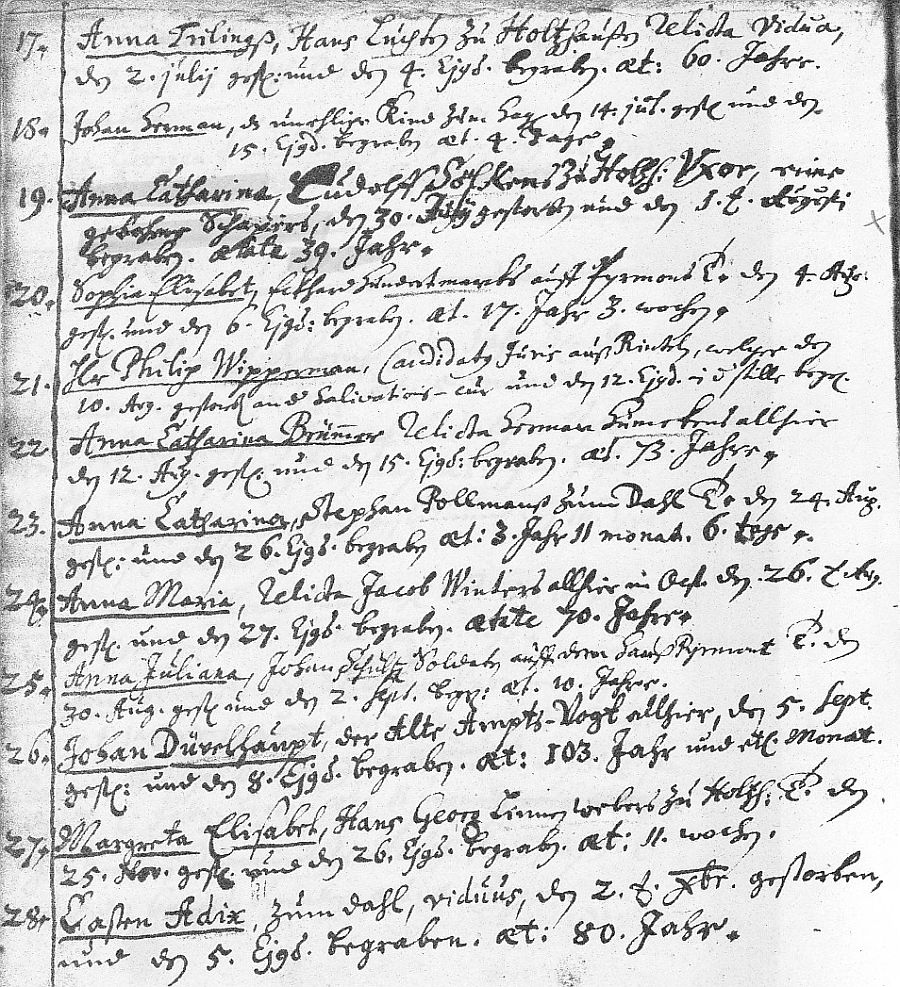 17. Anna Trilingß, Hans Lüchten zu Holtzhaußen Relicta Vidua,
den 2. julij gest: und den 4. Ejsd. begraben. æt: 60. Jahre.
18. Johan Herman, unehlige Kind zum den 14. jul. gest und den
15. Ejsd. begraben æt. 4. Tage.
19. Anna Catharina, Ludolff zu Holtzh: Vxor, eine
gebohrne Schapers, den 30. July gestorben und den 1. t. Augusti
begraben. ætate 39. Jahr.
20. Sophia Elisabet, Eckhard Hundertmarcks auff Pyrmont T. den 4. Aug.
gest. und den 6. Ejsd: begraben. æt. 17. Jahr 3. wochen.
21. Hr Philip Wipperman, Candidatg Juris auß Rinteln, welcher den
10. Aug. gestorb Salivations-cur und den 12. Ejsd. in d stille begr.
22 Anna Catharina Brümmer Relicta Herman allhier
den 12. Aug. gest. und den 15. Ejsd: begraben. æt. 73. Jahre.
23. Anna Catharina, Stephan Pollmanß zum Dahl T. den 24. Aug.
gest: und den 26. Ejsd. begraben æt: 3. Jahr 11 monat. 6. tage.
24. Anna Maria, Relicta Jacob Winters allhier den 26. t. Aug.
gest. und den 27. Ejsd. begraben. ætate 70. Jahre.
25. Anna Juliana, Johan Schultz Soldaten auff dem Hauß Pyrmont T. den
30. Aug. gest und den 2. Sept. begr: æt. 10. Jahre.
26. Johan Düvelhaupt, der Alte Ampts-Vogt allhier, den 5. Sept.
gest: und den 8. Ejsd. begraben. æt: 103. Jahr und etl. Monat.
27. Margreta Elisabet, Hans Georg Linnenwebers zu Holtzh: T. den
25. Nov. gest. und den 26. Ejsd. begraben. æt: 11. wochen.
28. Casten Adix, zum dahl, viduus, den 2. t. Xbr. gestorben,
und den 5. Ejsd. begraben. æt: 80. Jahr.